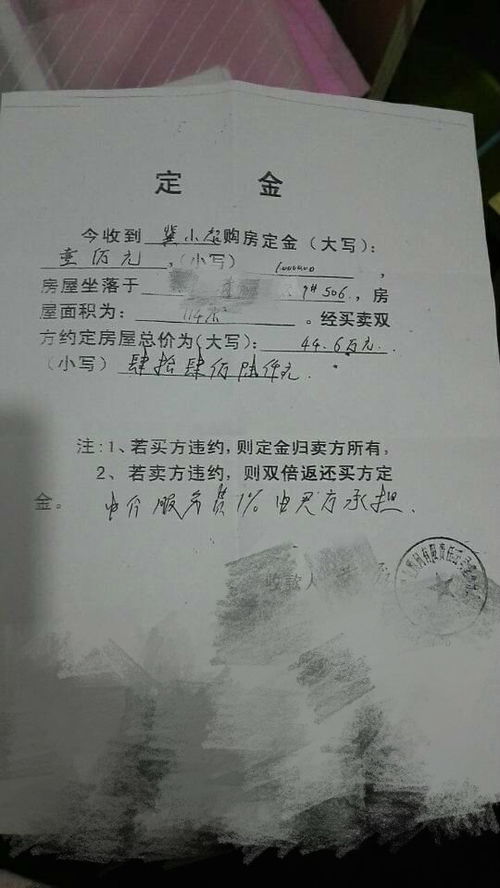 定 金
今收到 龚小超 购房定金(大写):
壹万元 ,(小写) 10000.00 ,
房屋坐落于 9# 506 ,房
屋面积为: 114m² 。经买卖双
方约定房屋总价为(大写): 44.6万元.
(小写) 肆拾肆万陆仟元.
注:1、若买方违约,则定金归卖方所有,
2、若卖方违约,则双倍返还买方定
金。 中介服务费1%由买方承担.
收款人